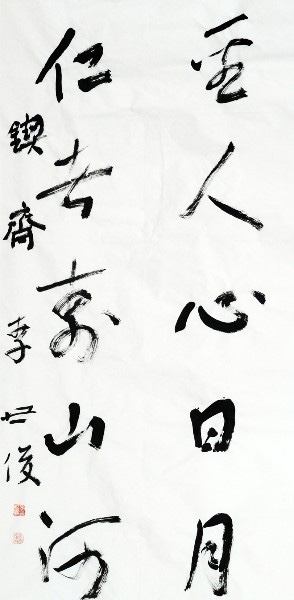 至人心日月
仁者壽山河
鍥齋 李世俊